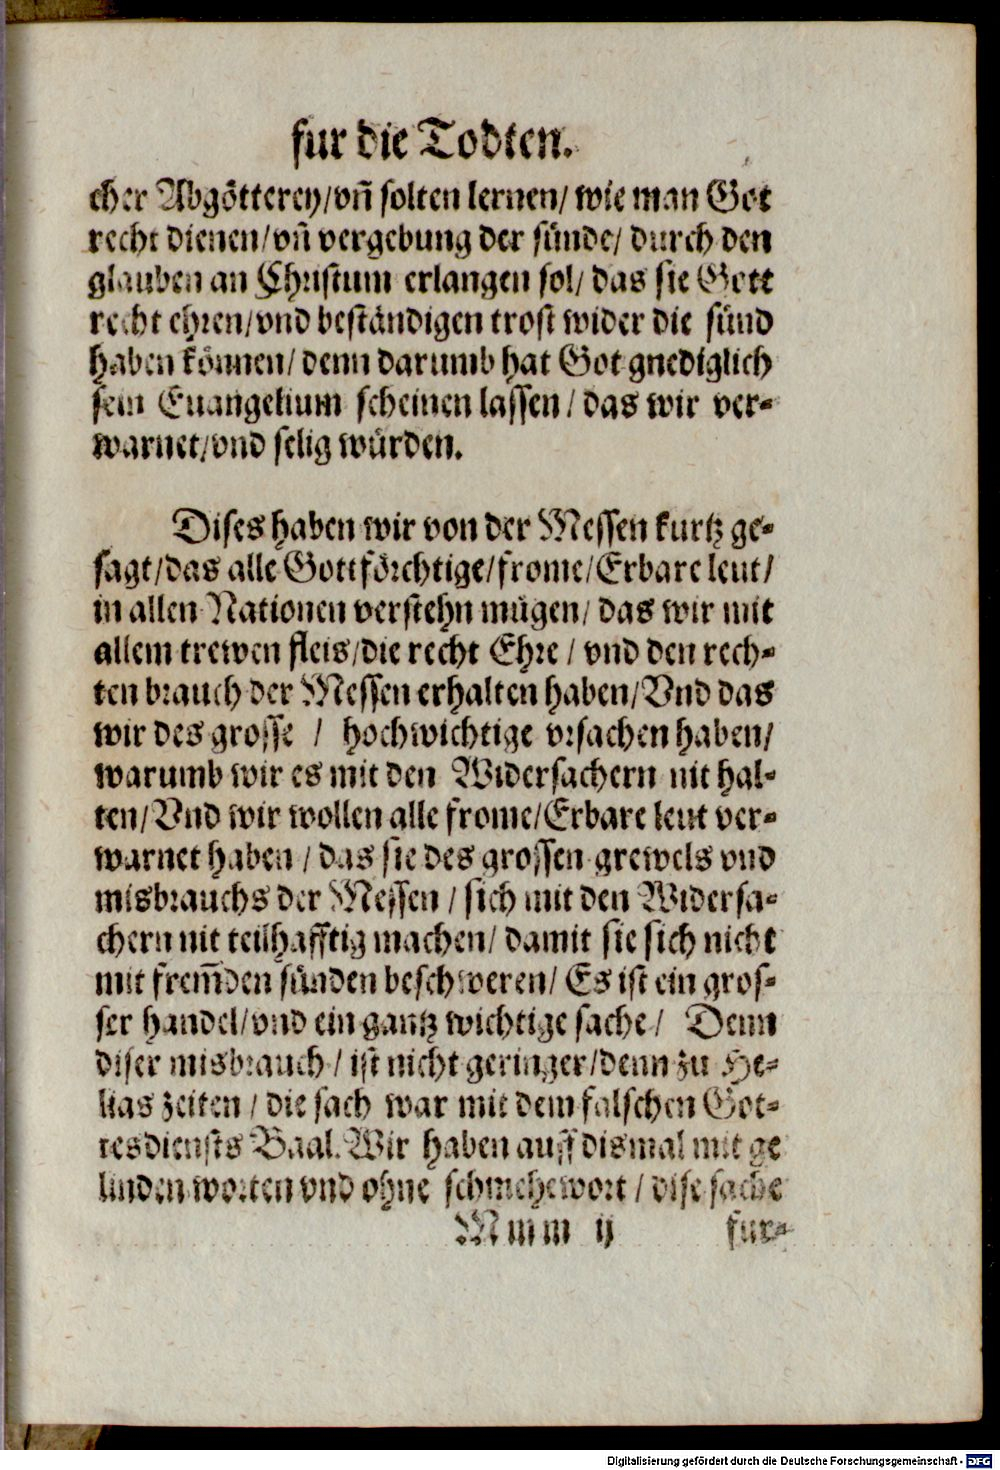 fur die Todten.
cher Abgötterey/vñ solten lernen/ wie man Got
recht dienen/vñ vergebung der sünde/ durch den
glauben an Christum erlangen sol/ das sie Gott
recht ehren/vnd beständigen trost wider die sünd
haben können/ denn darumb hat Got gnediglich
sein Euangelium scheinen lassen/ das wir ver-
warnet/vnd selig würden.
Dises haben wir von der Messen kurtz ge-
sagt/das alle Gottförchtige/frome/Erbare leut/
in allen Nationen verstehn mügen/ das wir mit
allem trewen fleis/die recht Ehre/ vnd den rech-
ten brauch der Messen erhalten haben/Vnd das
wir des grosse / hochwichtige vrsachen haben/
warumb wir es mit den Widersachern nit hal-
ten/Vnd wir wollen alle frome/Erbare leut ver-
warnet haben / das sie des grossen grewels vnd
misbrauchs der Messen / sich mit den Widersa-
chern nit teilhafftig machen/ damit sie sich nicht
mit frem̃den sünden beschweren/ Es ist ein gros-
ser handel/vnd ein gantz wichtige sache/ Denn
diser misbrauch / ist nicht geringer/denn zu He-
lias zeiten / die sach war mit dem falschen Got-
tesdiensts Baal. Wir haben auff dismal mit ge
linden worten vnd ohne schmehewort / dise sache
Mmm ij fur-
Digitalisierung gefördert durch die Deutsche Forschungsgemeinschaft - DFG